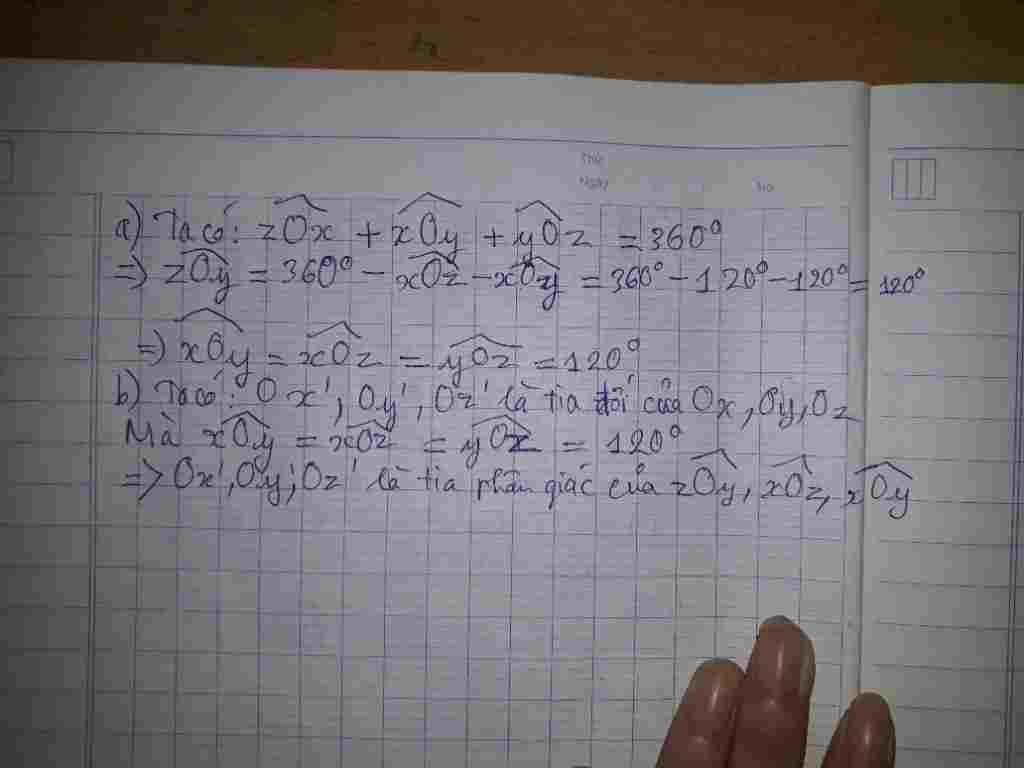 Thứ
Ngày No
a) Ta có: zOx + xOy + yOz = 360°
=> zOy = 360° - xOz - xOy = 360° - 120° - 120° = 120°
=> xOy = xOz = yOz = 120°
b) Ta có: Ox', Oy', Oz' là tia đối của Ox, Oy, Oz
Mà xOy = xOz = yOz = 120°
=> Ox', Oy', Oz' là tia phân giác của zOy, xOz, xOy